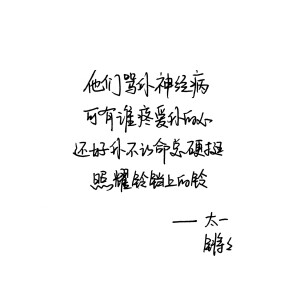 他们骂我神经病
可有谁疼爱我的心
还好我不认命总硬挺
照耀铃铛上的铃
——太一